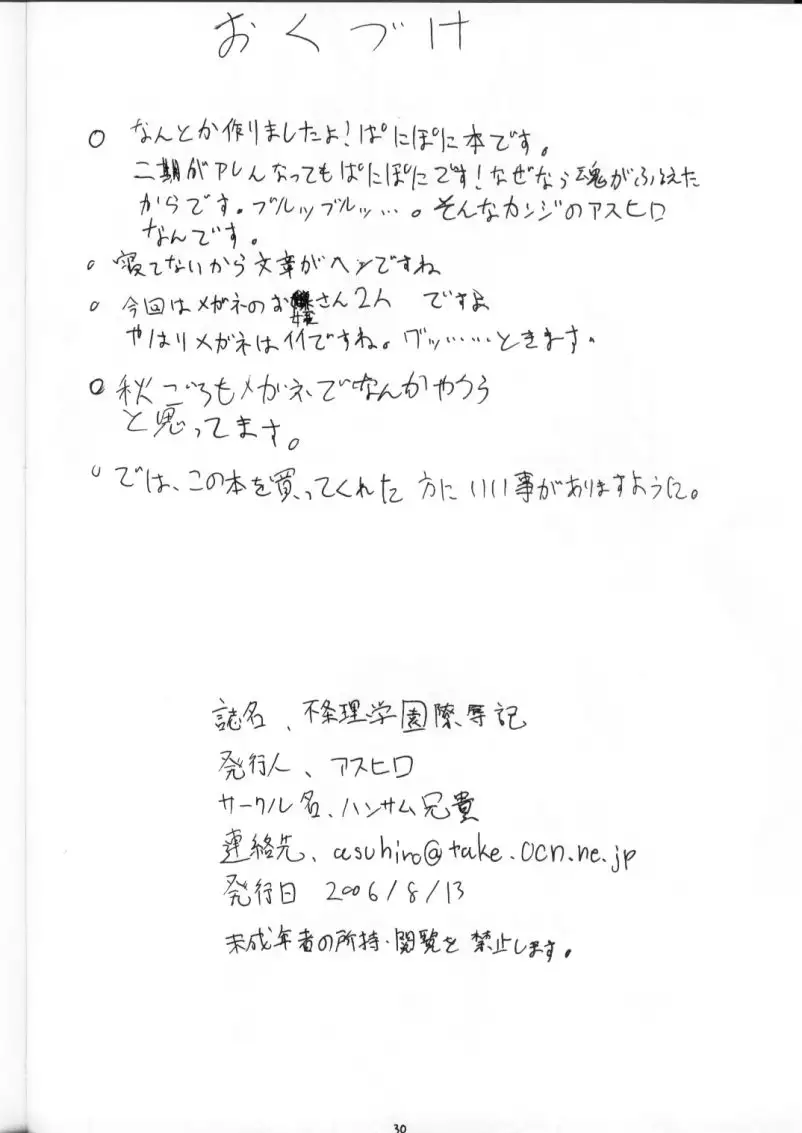 おくづけ
○ なんとか作りましたよ!ぱにぽに本です。
二期がアレんなってもぱにぽにです!なぜなら魂がふるえた
からです。ブルッブルッ…。そんなカンジのアスヒロ
なんです。
○ 寝てないから文章がヘンですね
○ 今回はメガネのお嬢さん2人 ですよ
やはりメガネはイイですね。グッ……ときます。
○ 秋ごろもメガネでなんかやろう
と思ってます。
○ では、この本を買ってくれた 方に いい事がありますように。
誌名、不条理学園陵辱記
発行人、アスヒロ
サークル名、ハンサム兄貴
連絡先、asuhiro@take.ocn.ne.jp
発行日 2006/8/13
未成年者の所持・閲覧を禁止します。
30